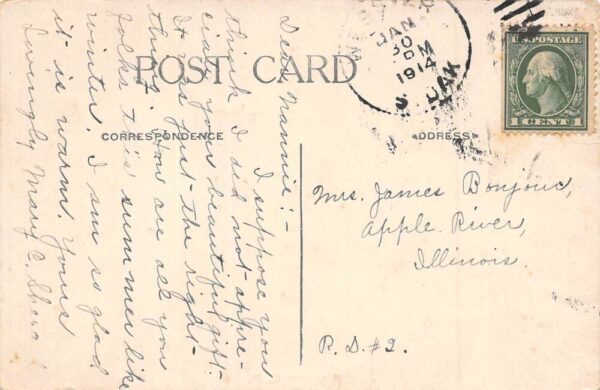 POST CARD
CORRESPONDENCE
ADDRESS
JAN
30
PM
1914
S. DAK
U.S. POSTAGE
1 CENT 1
Dear Nannie:-
I suppose you
think I did not appre-
ciate your beautiful gift:-
It was just the right-
thing. How are all you
folks this summer like
winter. I am so glad
it is warm. Yours
Lovingly Mary C.
Mrs. James Bonjour,
Apple River,
Illinois.
R.D. #2.